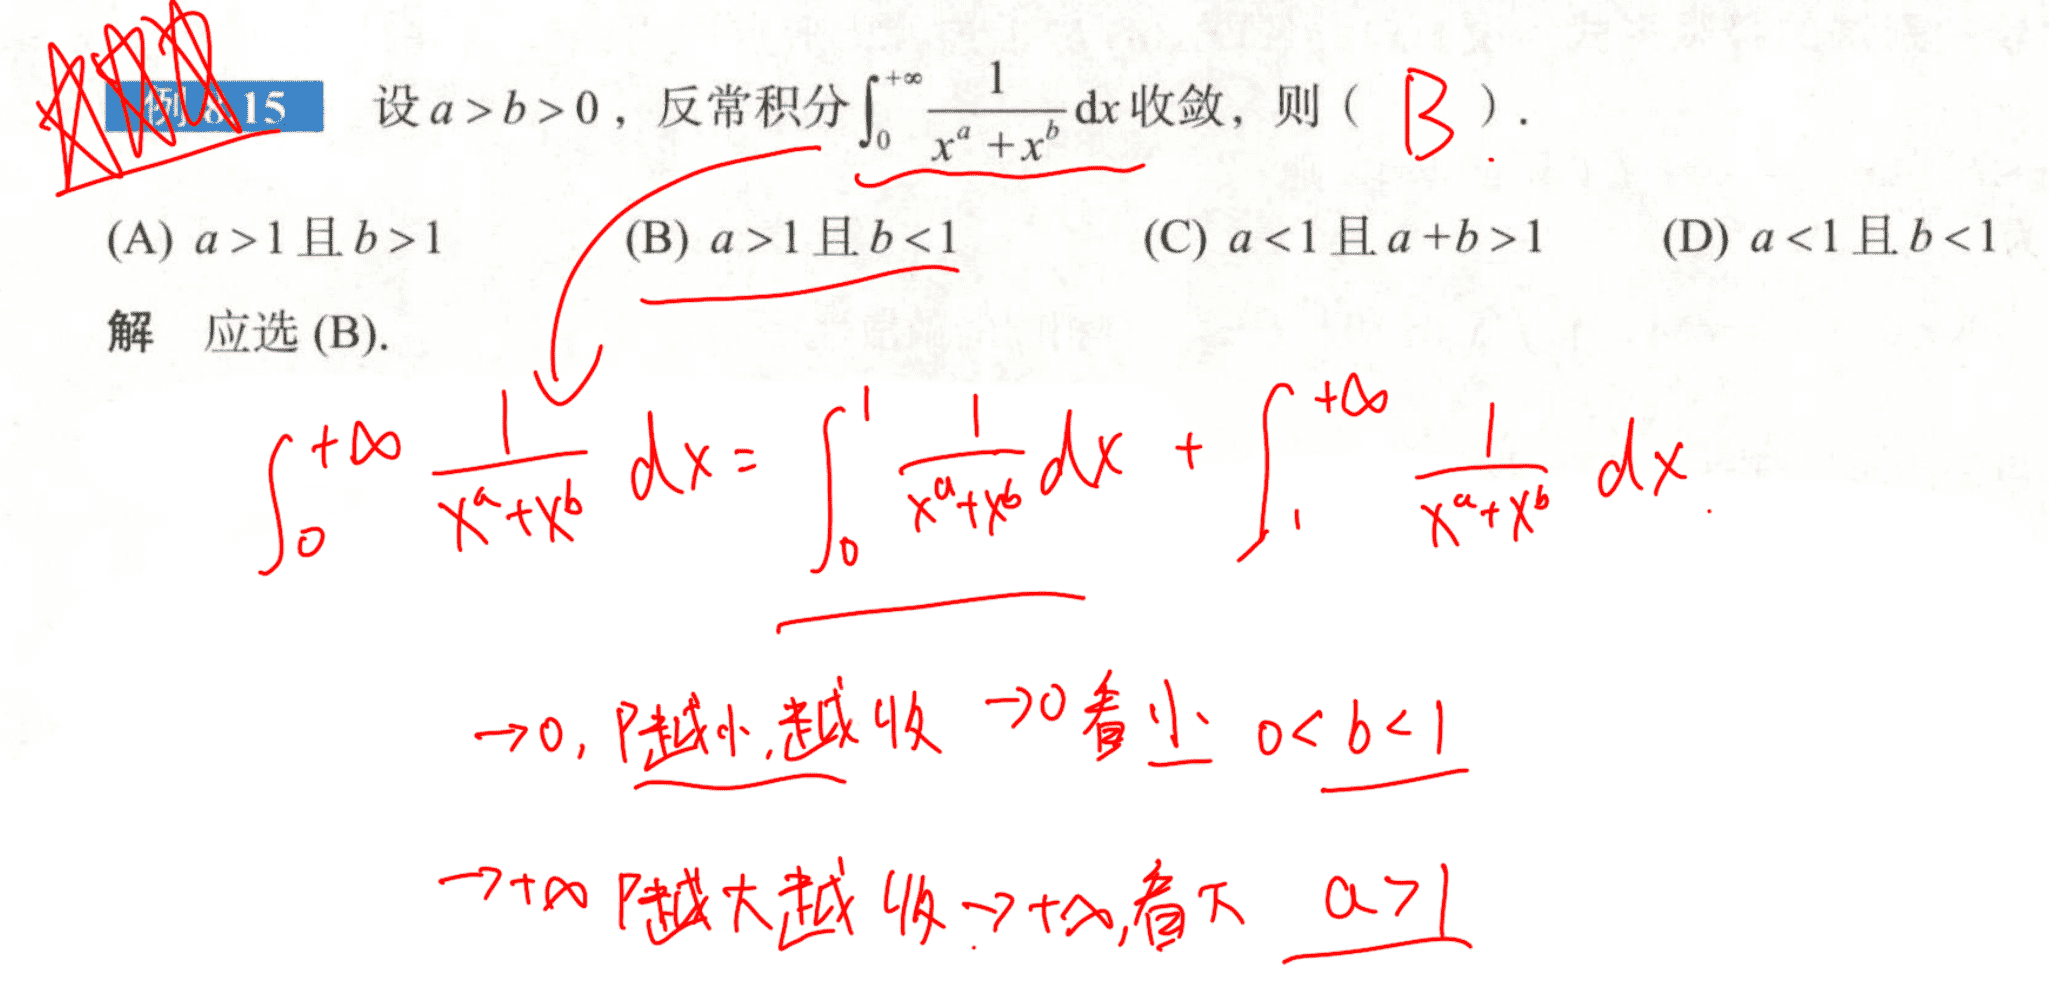 例 8.15 设 a > b > 0 ，反常积分 ∫₀^{+∞} 1/(x^a + x^b) dx 收敛，则（ B ）．
(A) a > 1 且 b > 1 (B) a > 1 且 b < 1 (C) a < 1 且 a + b > 1 (D) a < 1 且 b < 1
解 应选 (B).
∫₀^{+∞} 1/(x^a + x^b) dx = ∫₀^1 1/(x^a + x^b) dx + ∫₁^{+∞} 1/(x^a + x^b) dx.
→0, P越小,越收 →0 看小 0 < b < 1
→+∞ P越大越收 → +∞,看大 a > 1